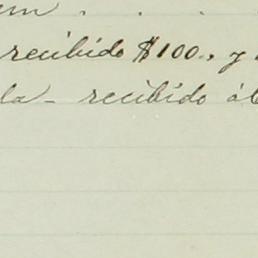 recibido $100., y
la - recibido á